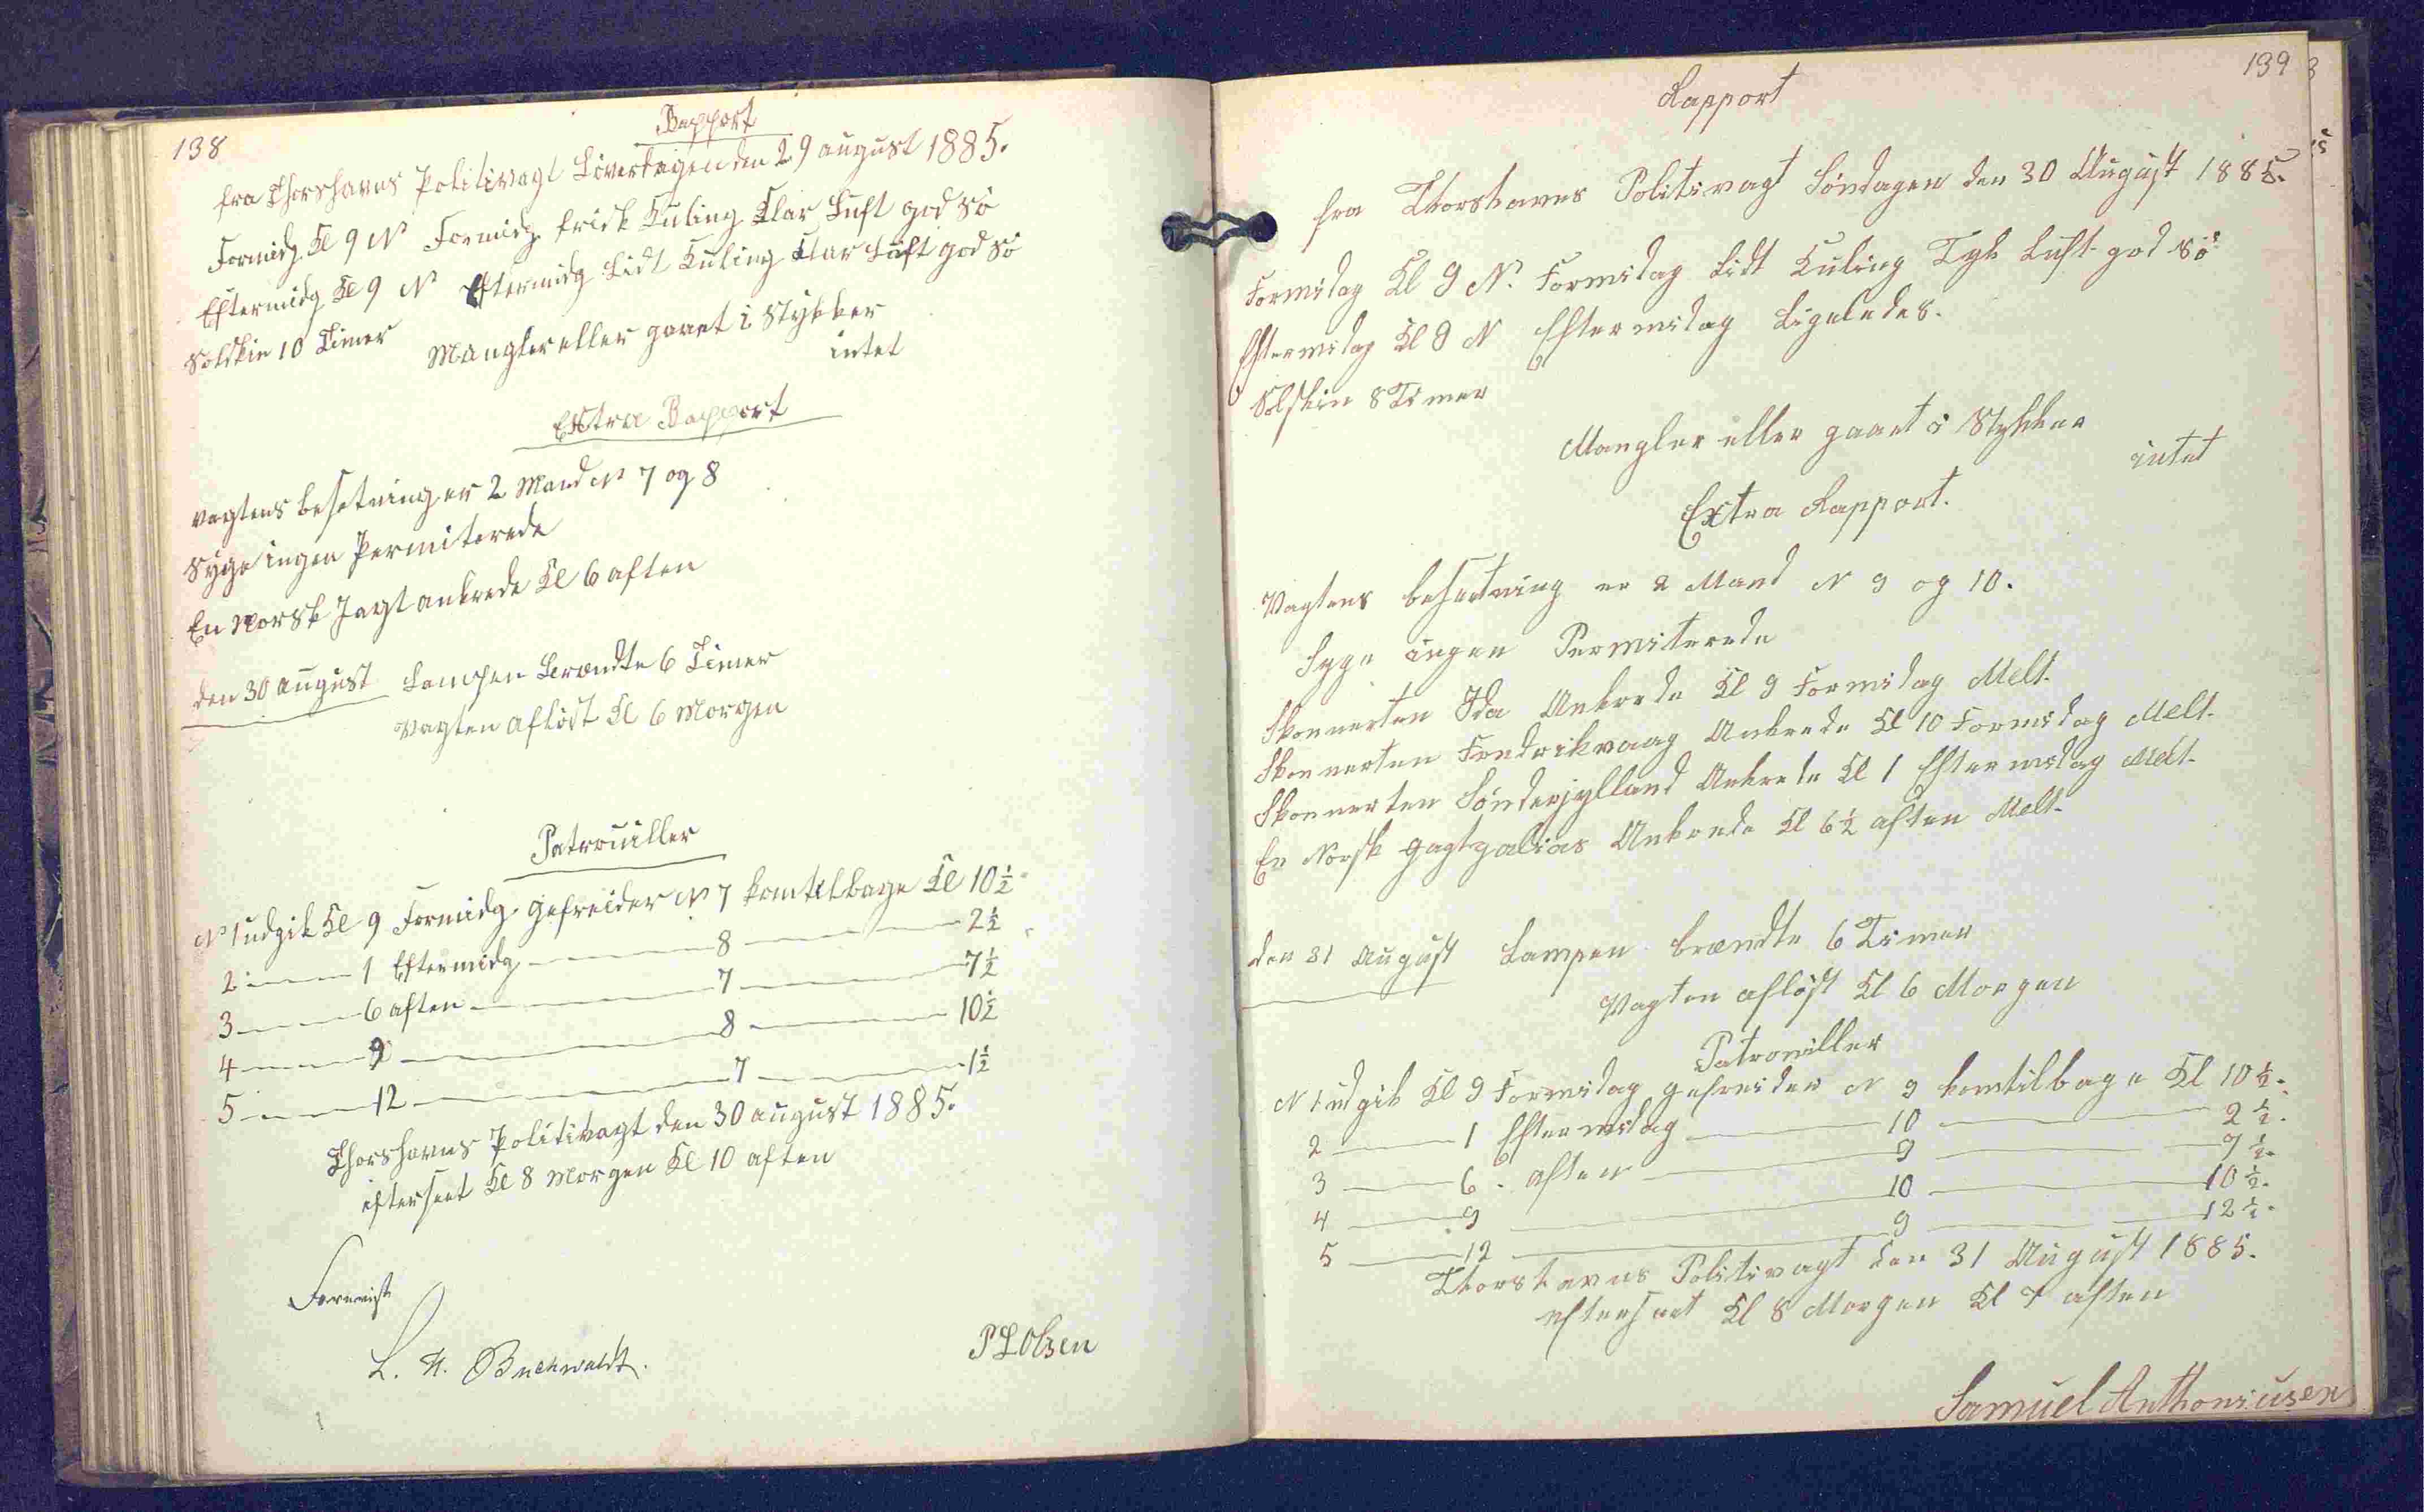 138
Rapport
fra Thorshavns Politivagt Löverdagen den 29 august 1885.
Formidg Kl 9 N Formidg frisk Kuling Klar Luft god Sö
Eftermidg Kl 9 N Eftermidg Lidt Kuling Klar Luft god Sö
Solskin 10 Timer
Mangler eller gaaet i Stykker
intet
Extra Rapport
Vagtens besetning er 2 Mand N 7 og 8
Syge ingen Permiterede
En Norsk Jagt ankrede Kl 6 aften
den 30 august Lampen Brændte 6 Timer
Vagten aflöst Kl 6 Morgen
Patrouiller
N 1 udgik Kl 9 Formidg Gefreider N 7 kom tilbage Kl 10½
2 — 1 Eftermidg — 8 — 2½
3 — 6 aften — 7 — 7½
4 — 9 — 8 — 10½
5 — 12 — 7 — 1½
Thorshavns Politivagt den 30 august 1885.
efterseet Kl 8 Morgen Kl 10 aften
Forevist
L. H. Buchwaldt.
P L Olsen
139
Rapport
fra Thorshavns Politivagt Söndagen den 30 August 1885.
Formidag Kl 9 N. Formidag Lidt Kuling Tyk Luft god Sö
Eftermidag Kl 9 N Eftermidag Ligeledes.
Solskin 8 Timer
Mangler eller gaaet i Stykker
intet
Extra Rapport.
Vagtens besætning er 2 Mand N 9 og 10.
Syge ingen Permiterede
Skonnerten Ida Ankrede Kl 9 Formidag Melt.
Skonnerten Fredrikvaag Ankrede Kl 10 Formidag Melt.
Skonnerten Sönderjylland Ankrede Kl 1 Eftermidag Melt.
En Norsk Jagtgalias Ankrede Kl 6½ aften Melt.
den 31 August Lampen brændte 6 Timer
Vagten aflöst Kl 6 Morgen
Patrouiller
N 1 udgik Kl 9 Formidag gefreider N 9 kom tilbage Kl 10½.
2 — 1 Eftermidag — 10 — 2½.
3 — 6. aften — 9 — 7½.
4 — 9 — 10 — 10½.
5 — 12 — 9 — 12½.
Thorshavns Politivagt den 31 August 1885.
efterseet Kl 8 Morgen Kl 7 aften
Samuel Anthoniusen